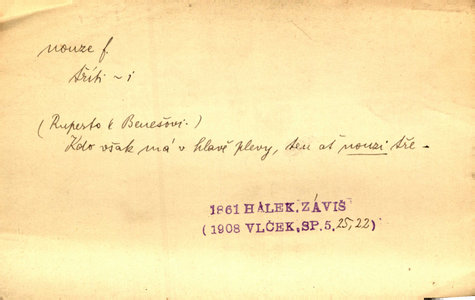 nouze f.
tříti ~ i
(Ruperto k Benešovi.)
Kdo však má v hlavě plevy, ten ať nouzi tře –
1861 HÁLEK, ZÁVIŠ
(1908 VLČEK, SP. 5, 25, 22)